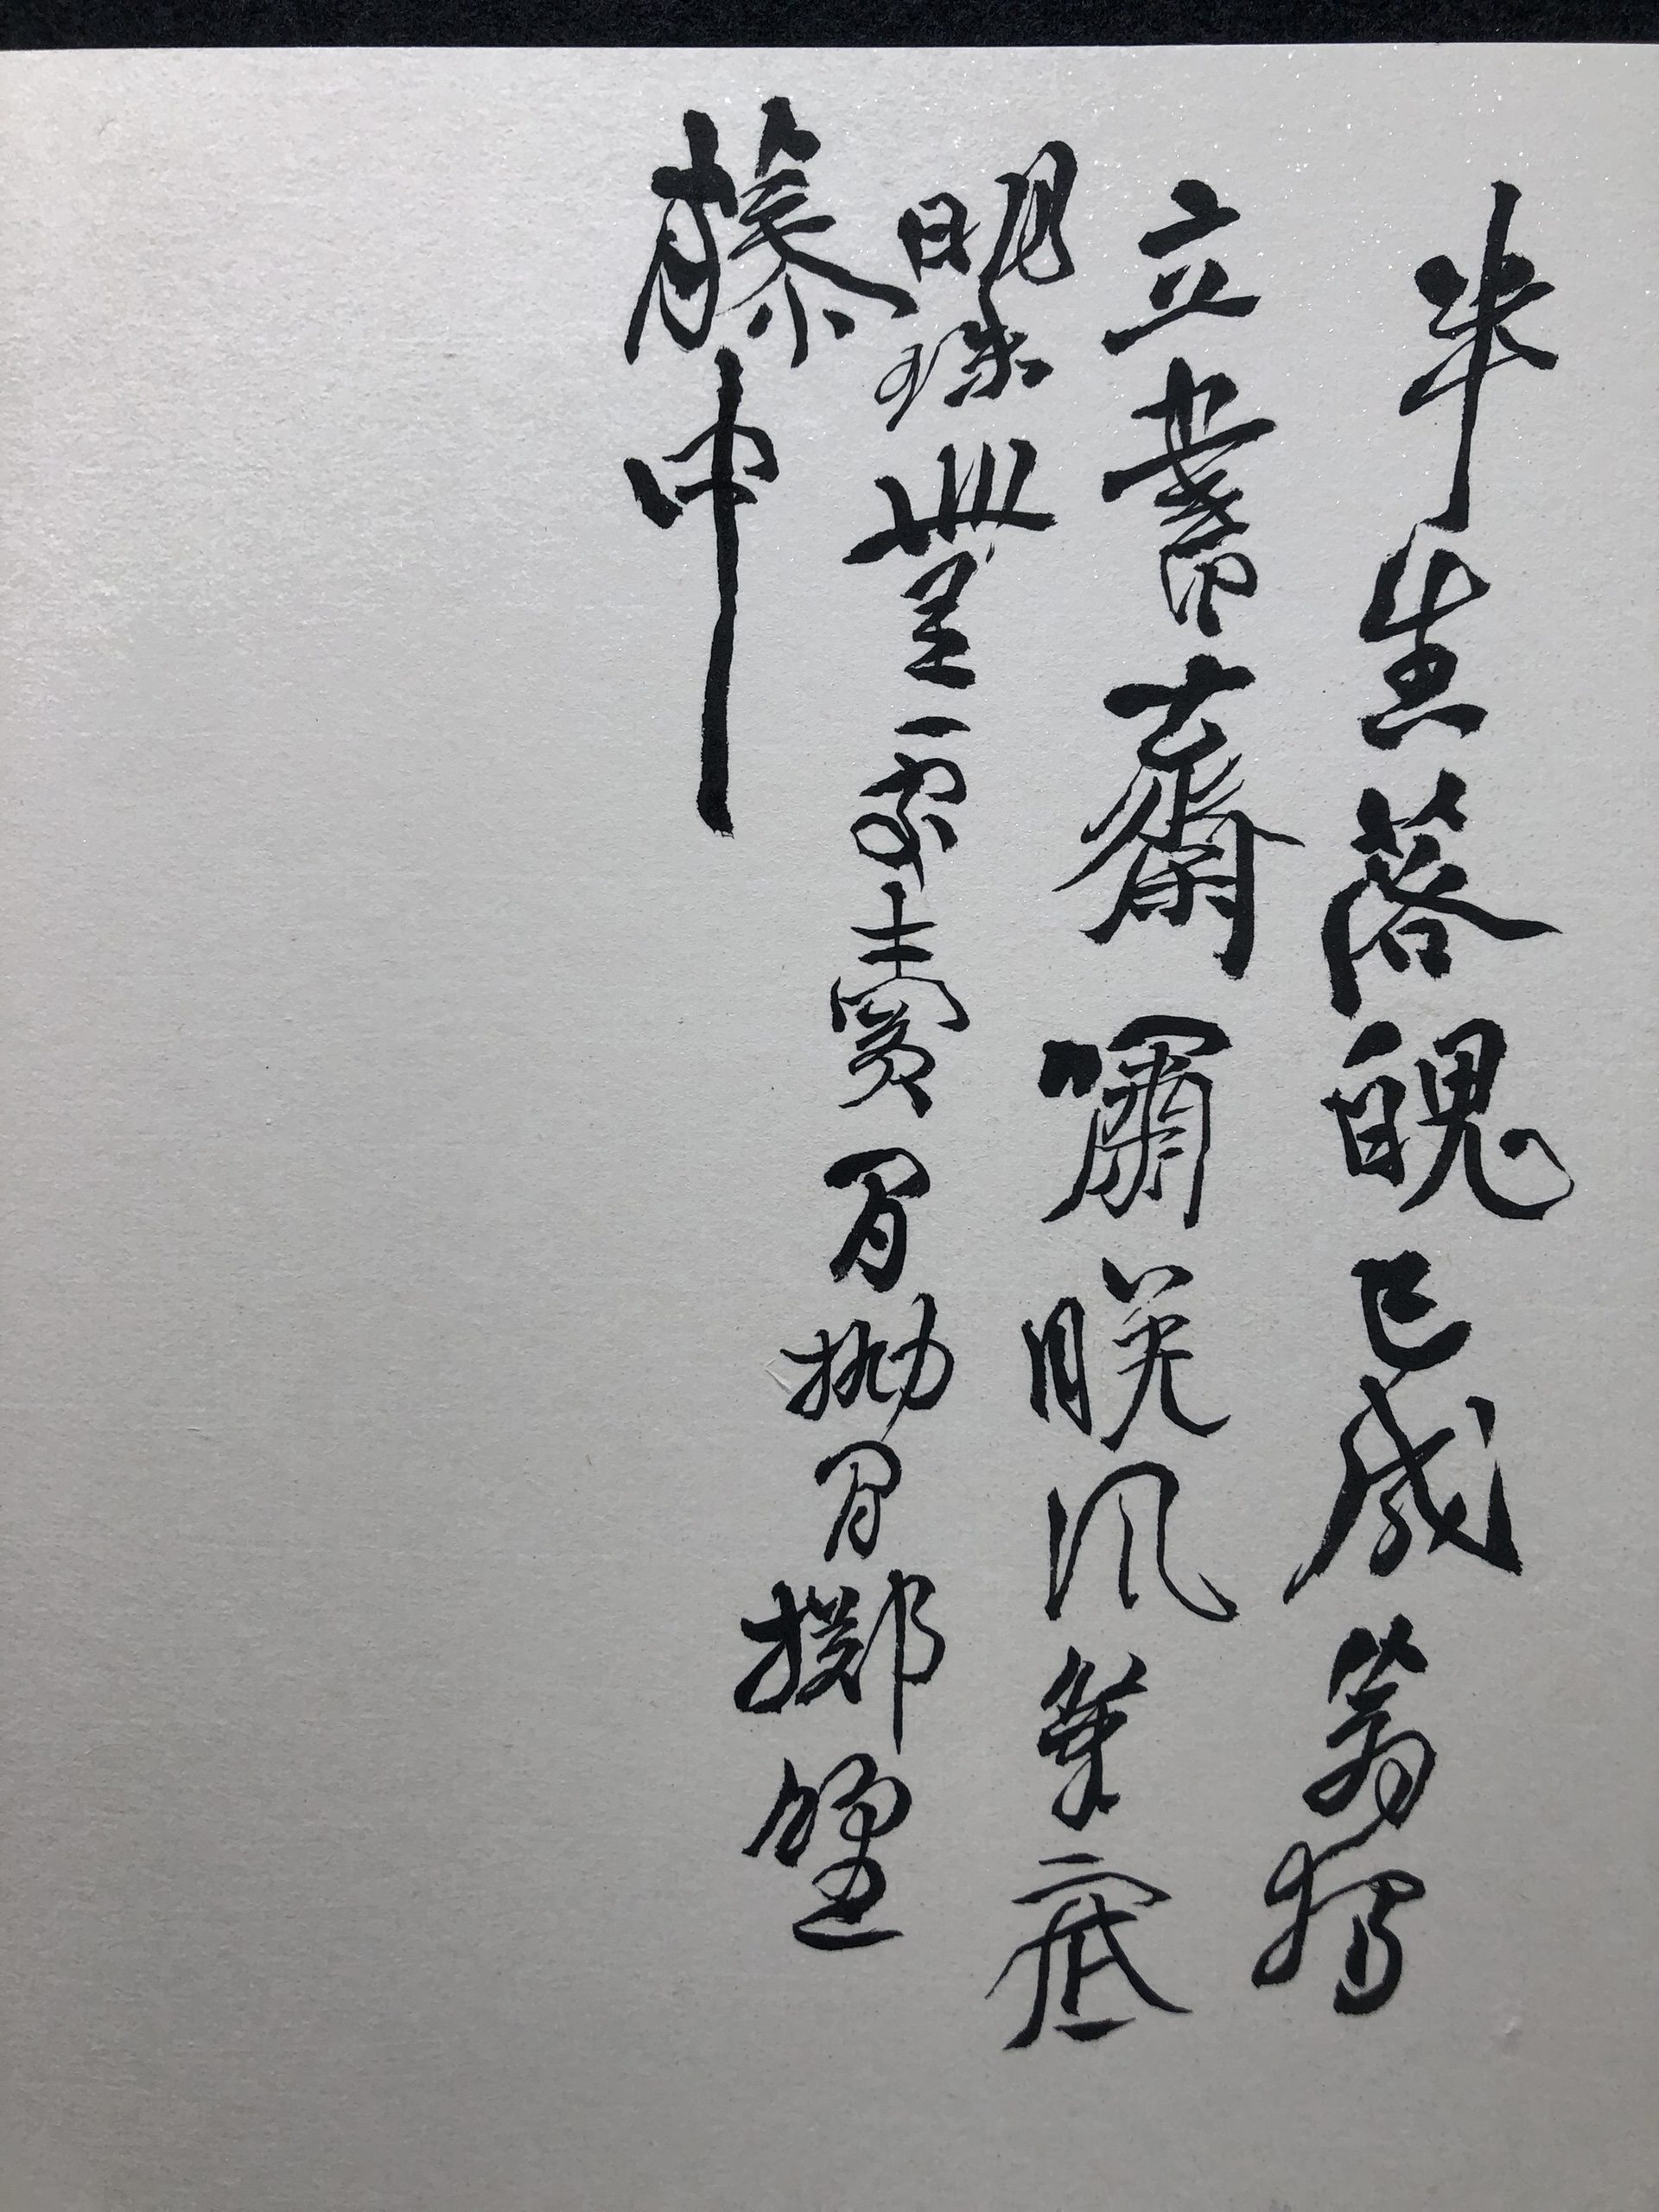 半生落魄已成翁獨
立書齋嘯晚風筆底
明珠無處賣閒拋閒擲野
藤中